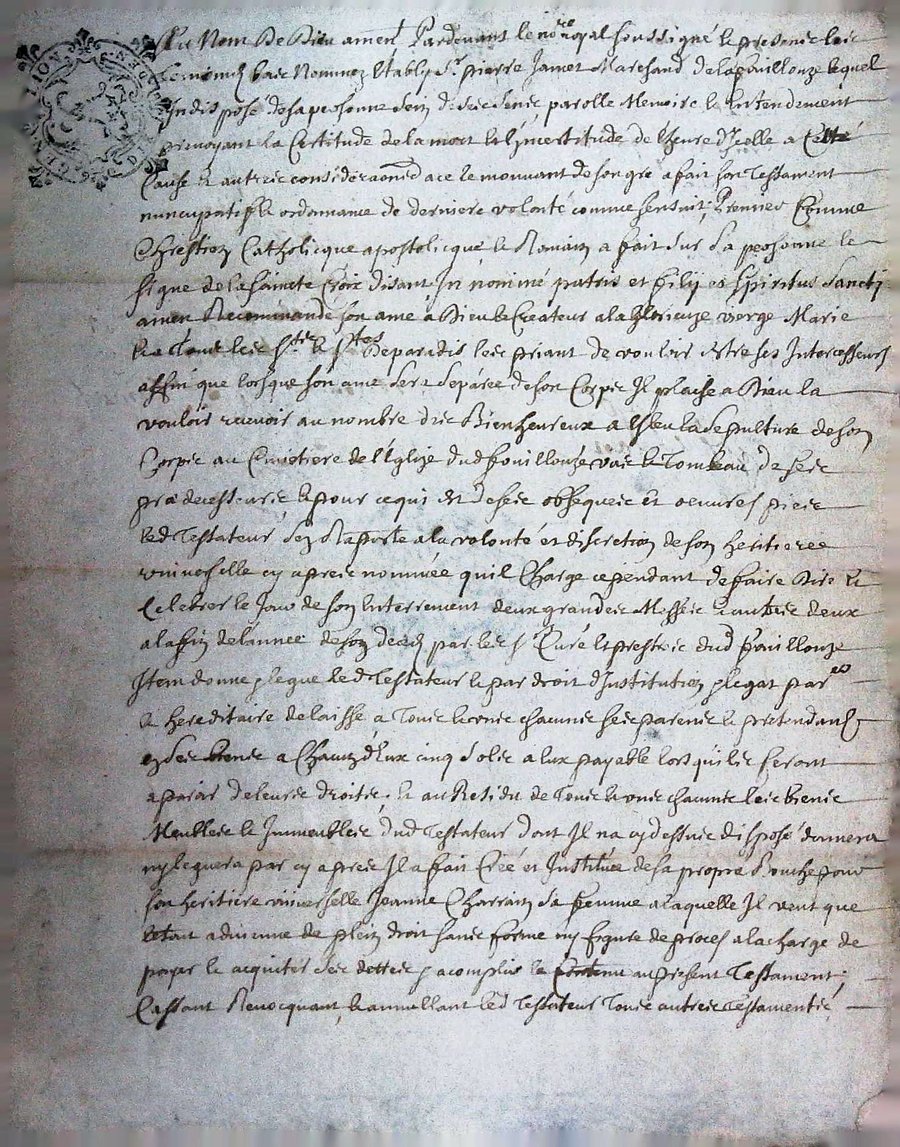 Au Nom De Dieu amen Pardevant le no.re royal soussigné & presents les
tesmoins bas Nommez estably Sr pierre Jamet Marchand de la fouillouze lequel
Indisposé de sa personne sain de ses sens parolle Memoire & Entendement
prevoyant la Certitude de la mort & l'Incertitude de l'heure d'Icelle a Cette
Cause & autres considéraons a ce le mouvant de son gré a fait son Testament
nuncupatif & ordonnance de derniere volonté comme sensuit, Premier Comme
Chrestien Catholicque apostolicque & Romain a fait sur sa personne le
signe de la saincte Croix disant In nominé patris et filij et spiritus sancti
amen Recommande son ame a Dieu le Createur a la glorieuze vierge Marie
& a Tous les Sts & Stes de paradis les priant de vouloir estre ses Intercesseurs
affin que lorsque son ame sera separée de son Corps Il plaise a Dieu la
vouloir recevoir au nombre des Bienheureux a Esleu la sepulture de son
Corps au Cimetiere de l'Eglize dud fouillouze vas & Tombeau de ses
predecesseurs & pour ce qui est de ses obseques et oeuvres pies
led Testateur s'en Raporte a la volonté et discretion de son heritiere
universelle cy apres nommée quil Charge cependant de faire Dire &
Celebrer le Jour de son Enterrement deux grandes Messes & autres deux
a la fin de lannée de son deces par les Srs Curé & prestres dud fouillouze
Item donne & legue led Testateur & par droit d'Institution & legat par.er
& hereditaire delaisse a Tous & uns chacuns ses parens & pretendants
en ses biens a Chacun d'Eux cinq sols a eux payable lors quils feront
aparoir de leurs droits, & au Residu de Tous & uns chacuns les biens
Meubles & Immeubles dud Testateur dont Il na cy dessus disposé donnera
ny leguera par cy apres Il a fait Créé et Institué de sa propre Bouche pour
son heritiere universelle Jeanne Charrain sa femme a laquelle Il veut que
le tout advienne de plein droit sans forme ny figure de proces a la charge de
payer & acquiter ses dettes & acomplir le Contenu au present Testament;
Cassant Revocquant & annullant led Testateur Tous autres Testaments,